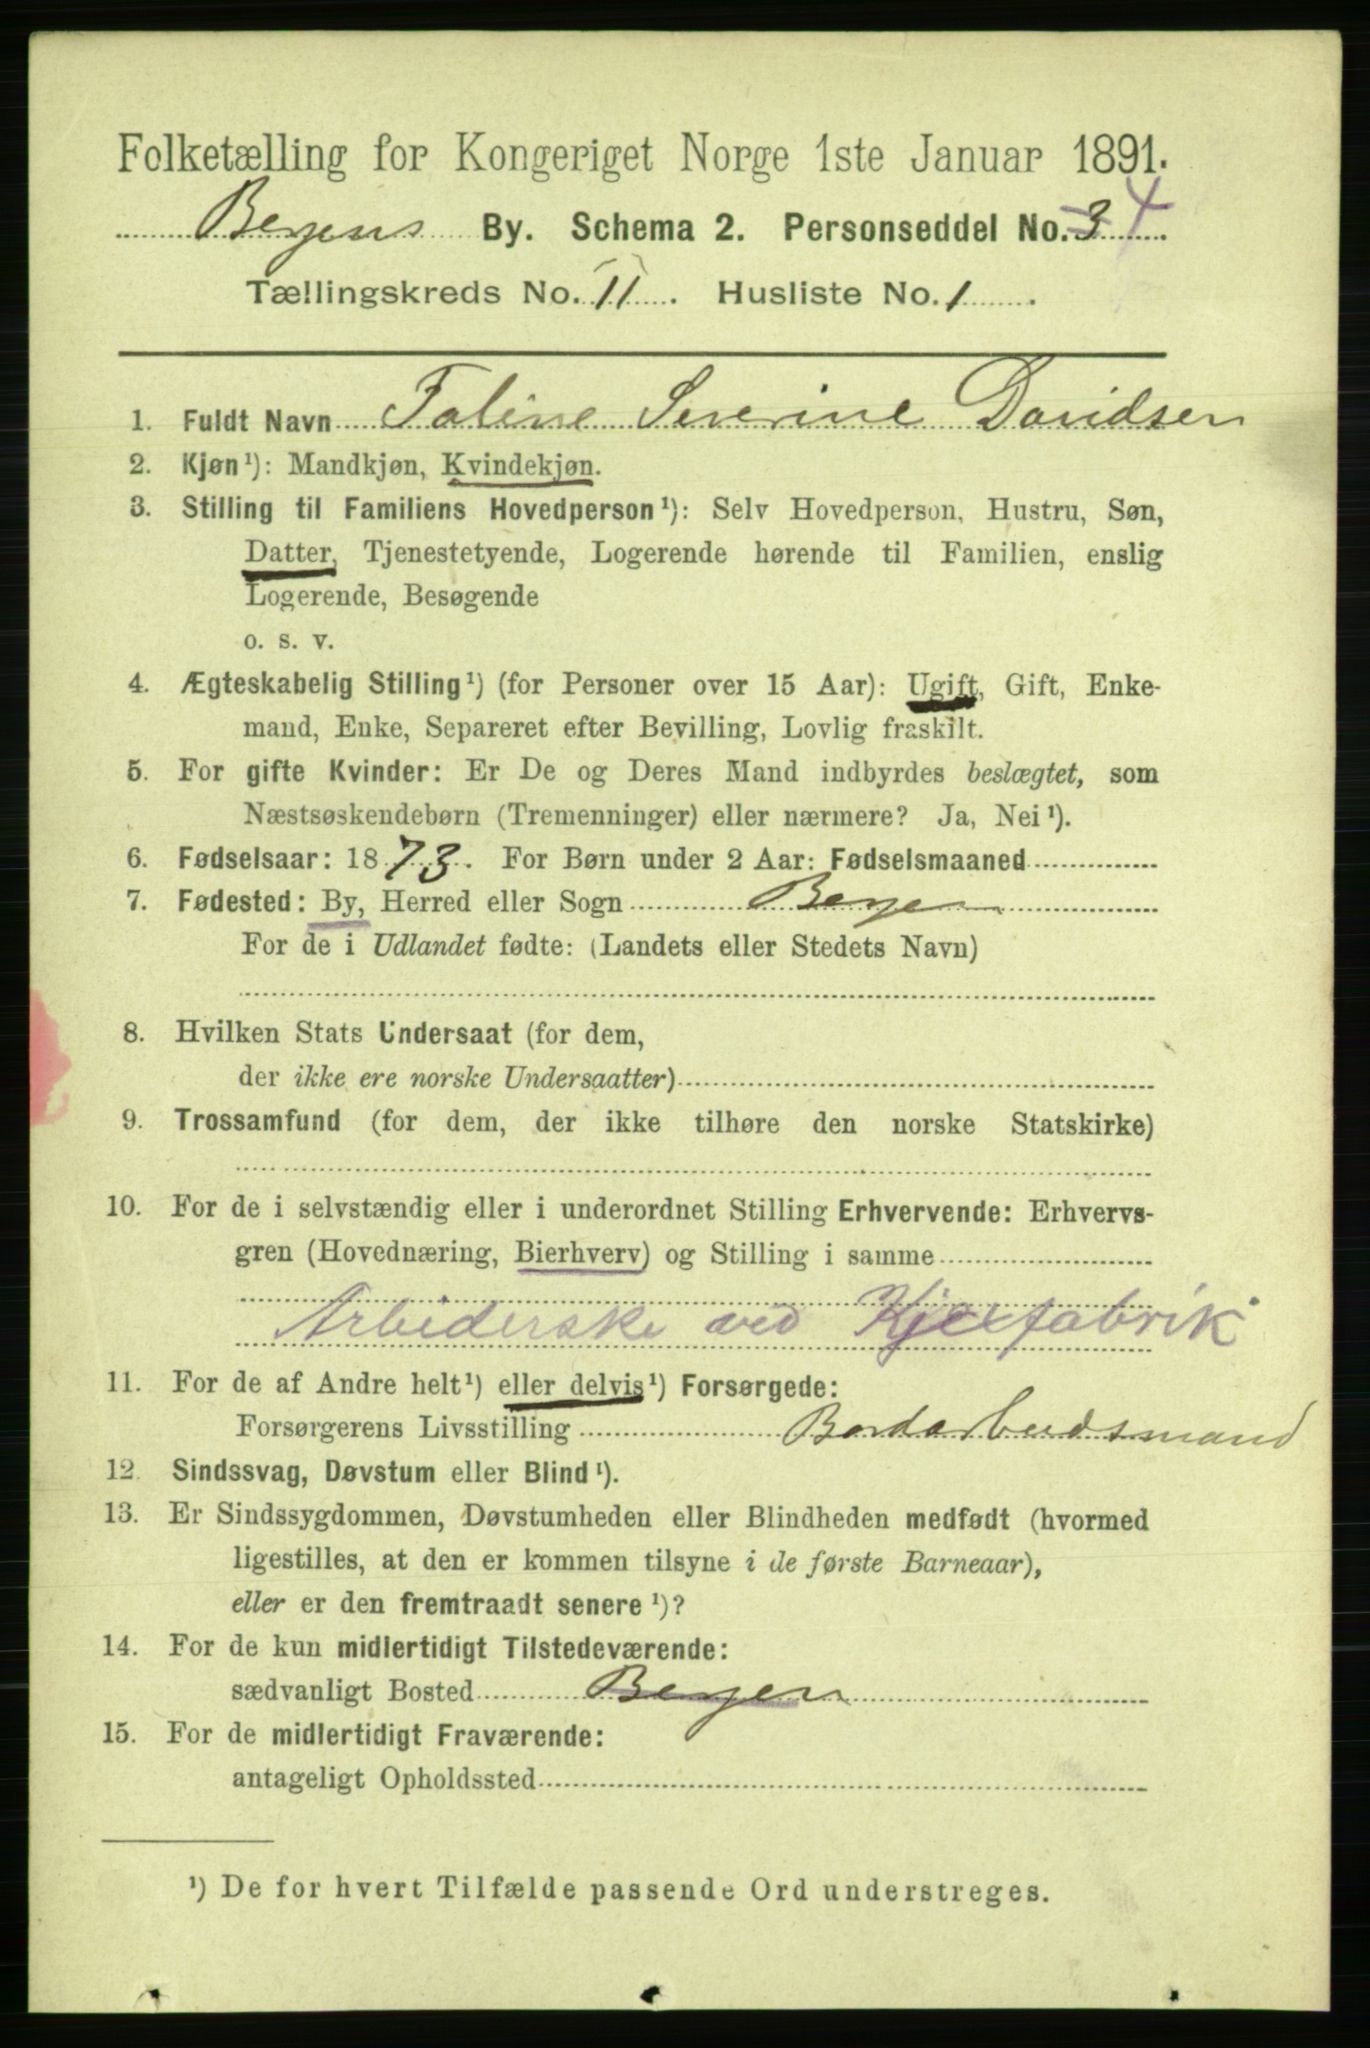 Folketælling for Kongeriget Norge 1ste Januar 1891.
Bergens By. Schema 2. Personseddel No. 3 4
Tællingskreds No. 11. Husliste No. 1.
1. Fuldt Navn Foline Severine Davidsen
2. Kjøn¹): Mandkjøn, Kvindekjøn.
3. Stilling til Familiens Hovedperson¹): Selv Hovedperson, Hustru, Søn,
Datter, Tjenestetyende, Logerende hørende til Familien, enslig
Logerende, Besøgende
o. s. v.
4. Ægteskabelig Stilling¹) (for Personer over 15 Aar): Ugift, Gift, Enke-
mand, Enke, Separeret efter Bevilling, Lovlig fraskilt.
5. For gifte Kvinder: Er De og Deres Mand indbyrdes beslægtet, som
Næstsøskendebørn (Tremenninger) eller nærmere? Ja, Nei¹).
6. Fødselsaar: 1873. For Børn under 2 Aar: Fødselsmaaned
7. Fødested: By, Herred eller Sogn Bergen
For de i Udlandet fødte: (Landets eller Stedets Navn)
8. Hvilken Stats Undersaat (for dem,
der ikke ere norske Undersaatter)
9. Trossamfund (for dem, der ikke tilhøre den norske Statskirke)
10. For de i selvstændig eller i underordnet Stilling Erhvervende: Erhvervs-
gren (Hovednæring, Bierhverv) og Stilling i samme
Arbeiderske ved Kjexfabrik
11. For de af Andre helt¹) eller delvis¹) Forsørgede:
Forsørgerens Livsstilling
12. Sindssvag, Døvstum eller Blind¹).
13. Er Sindssygdommen, Døvstumheden eller Blindheden medfødt (hvormed
ligestilles, at den er kommen tilsyne i de første Barneaar),
eller er den fremtraadt senere¹)?
14. For de kun midlertidigt Tilstedeværende:
sædvanligt Bosted Bergen
15. For de midlertidigt Fraværende:
antageligt Opholdssted
¹) De for hvert Tilfælde passende Ord understreges.